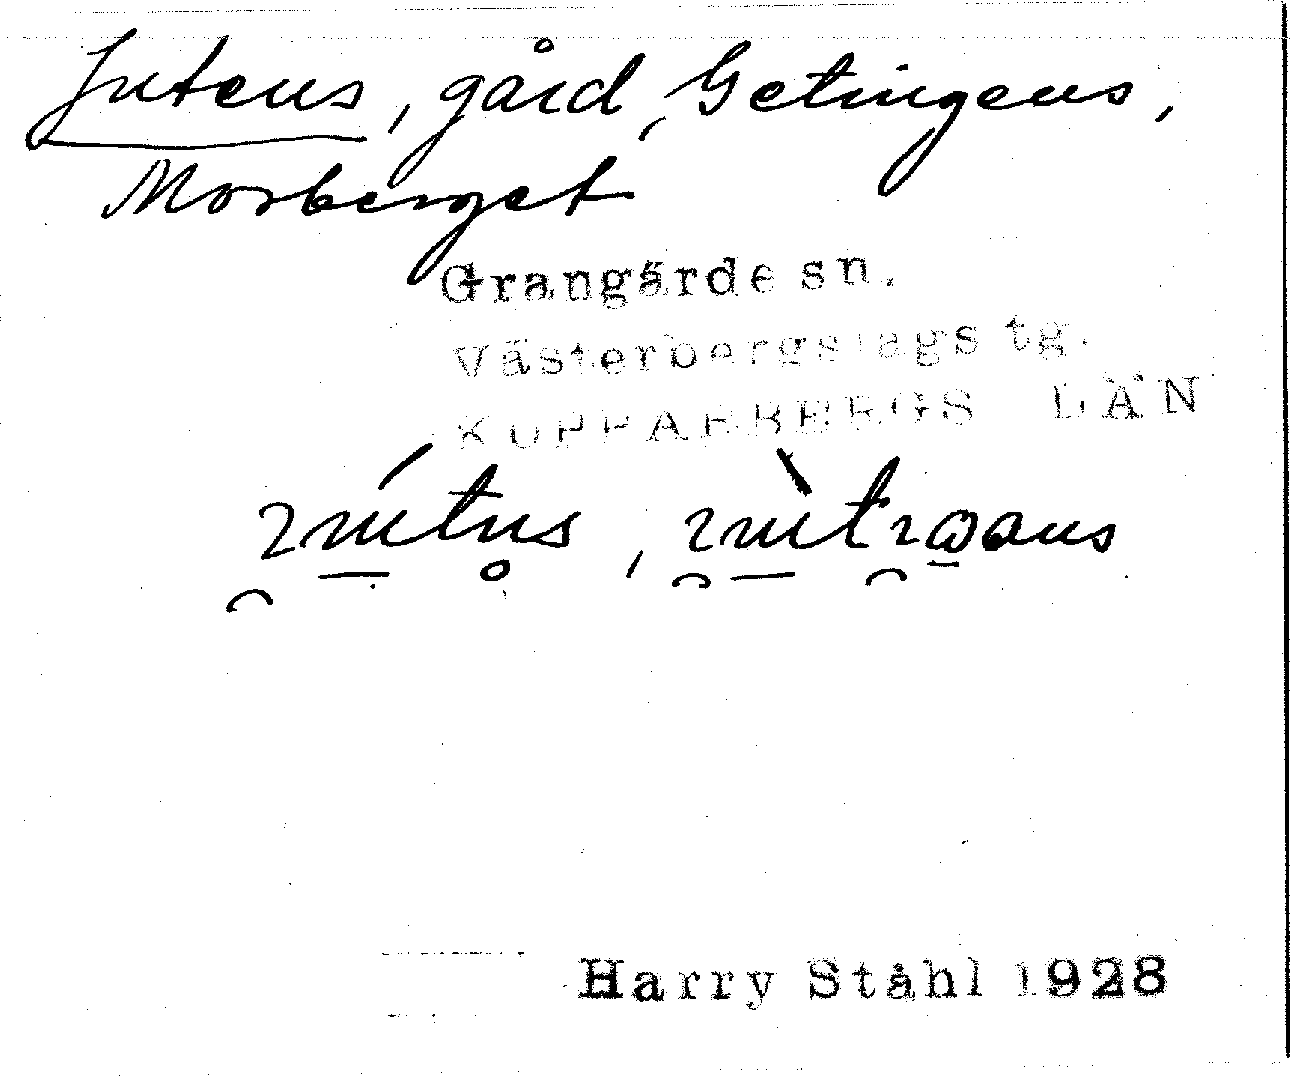 Jutens, gård, Getingens,
Morberget
Grangärde sn.
Västerbergslags tg.
KOPPARBERGS LÄN
Harry Ståhl 1928